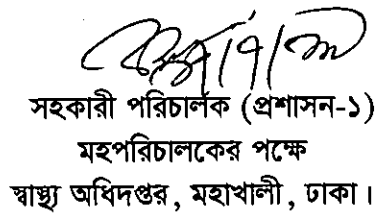 সহকারী পরিচালক (প্রশাসন-১)
মহপরিচালকের পক্ষে
স্বাস্থ্য অধিদপ্তর, মহাখালী, ঢাকা।